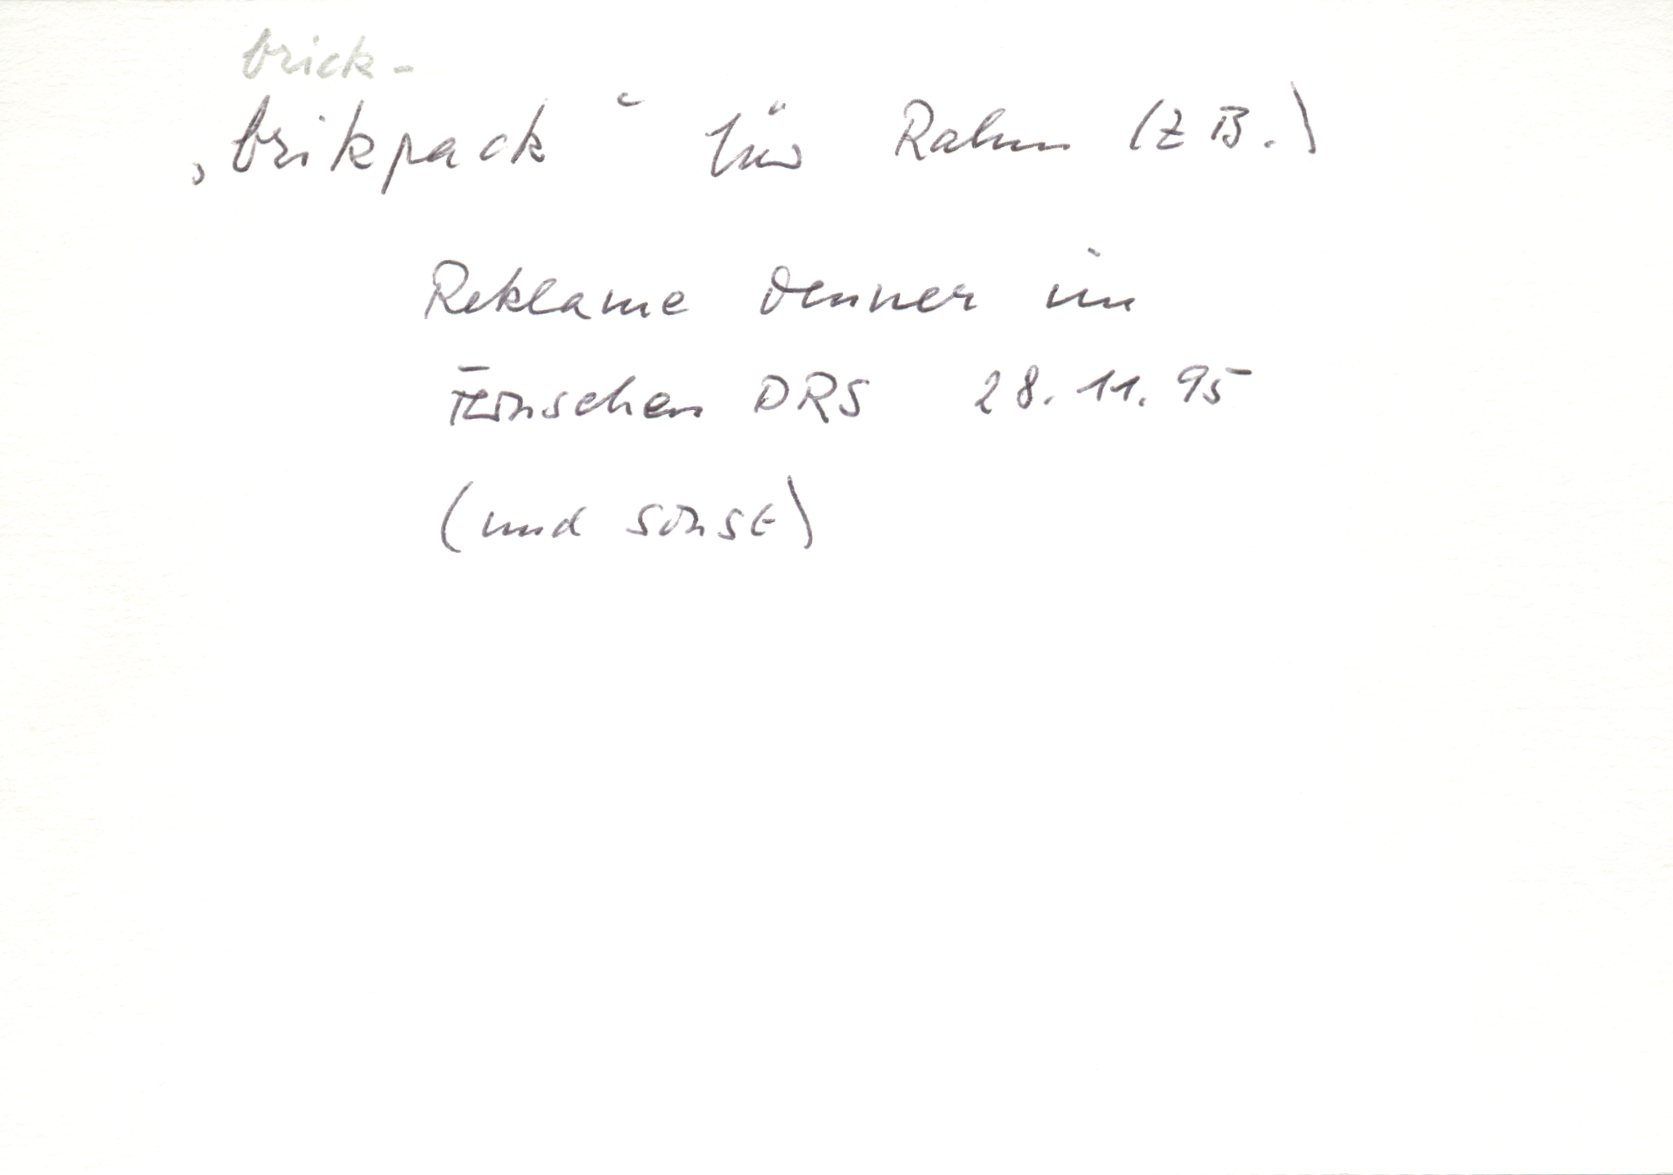 brick-
„brikpack“ für Rahm (z B.)
Reklame Denner im
Fernsehen DRS 28.11.95
(und sonst)